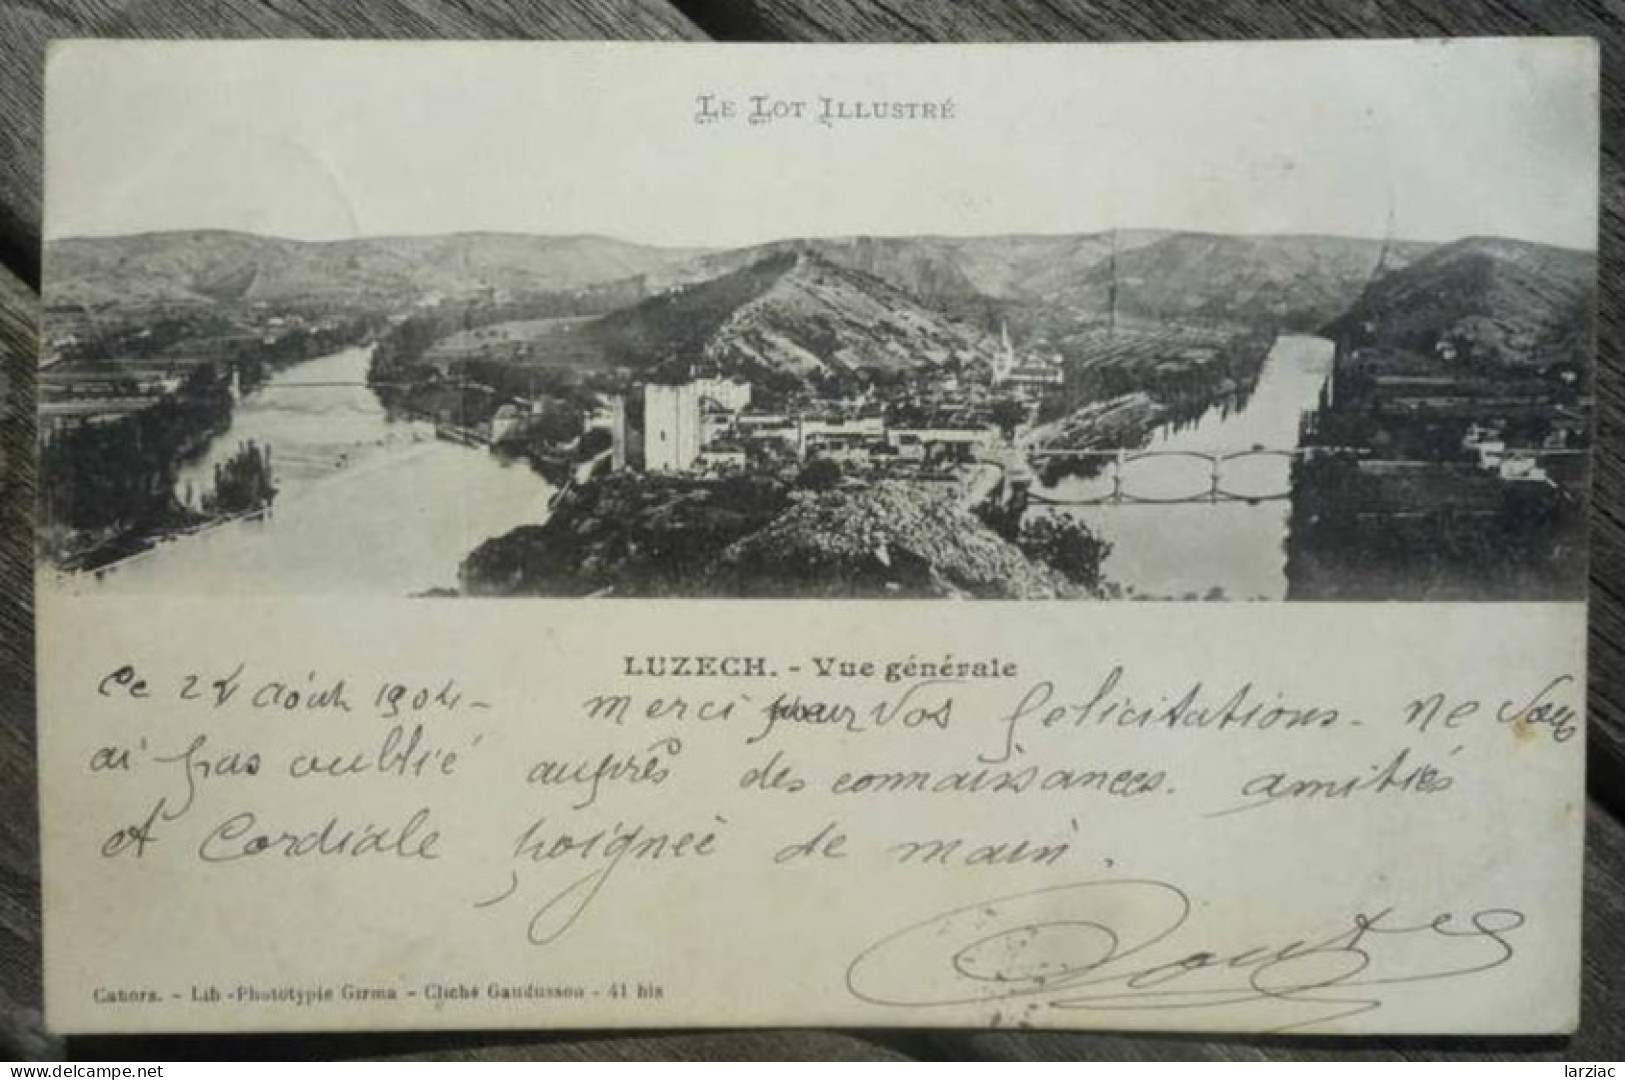 LE LOT ILLUSTRÉ
LUZECH. - Vue générale
Ce 24 août 1904 - merci pour vos felicitations. ne vous
ai pas oublié auprès des connaissances. amitiés
et Cordiale poignée de main.
Cahors. - Lib-Phototypie Girma - Cliché Gaudusson - 41 bis
delcampe.net
larziac